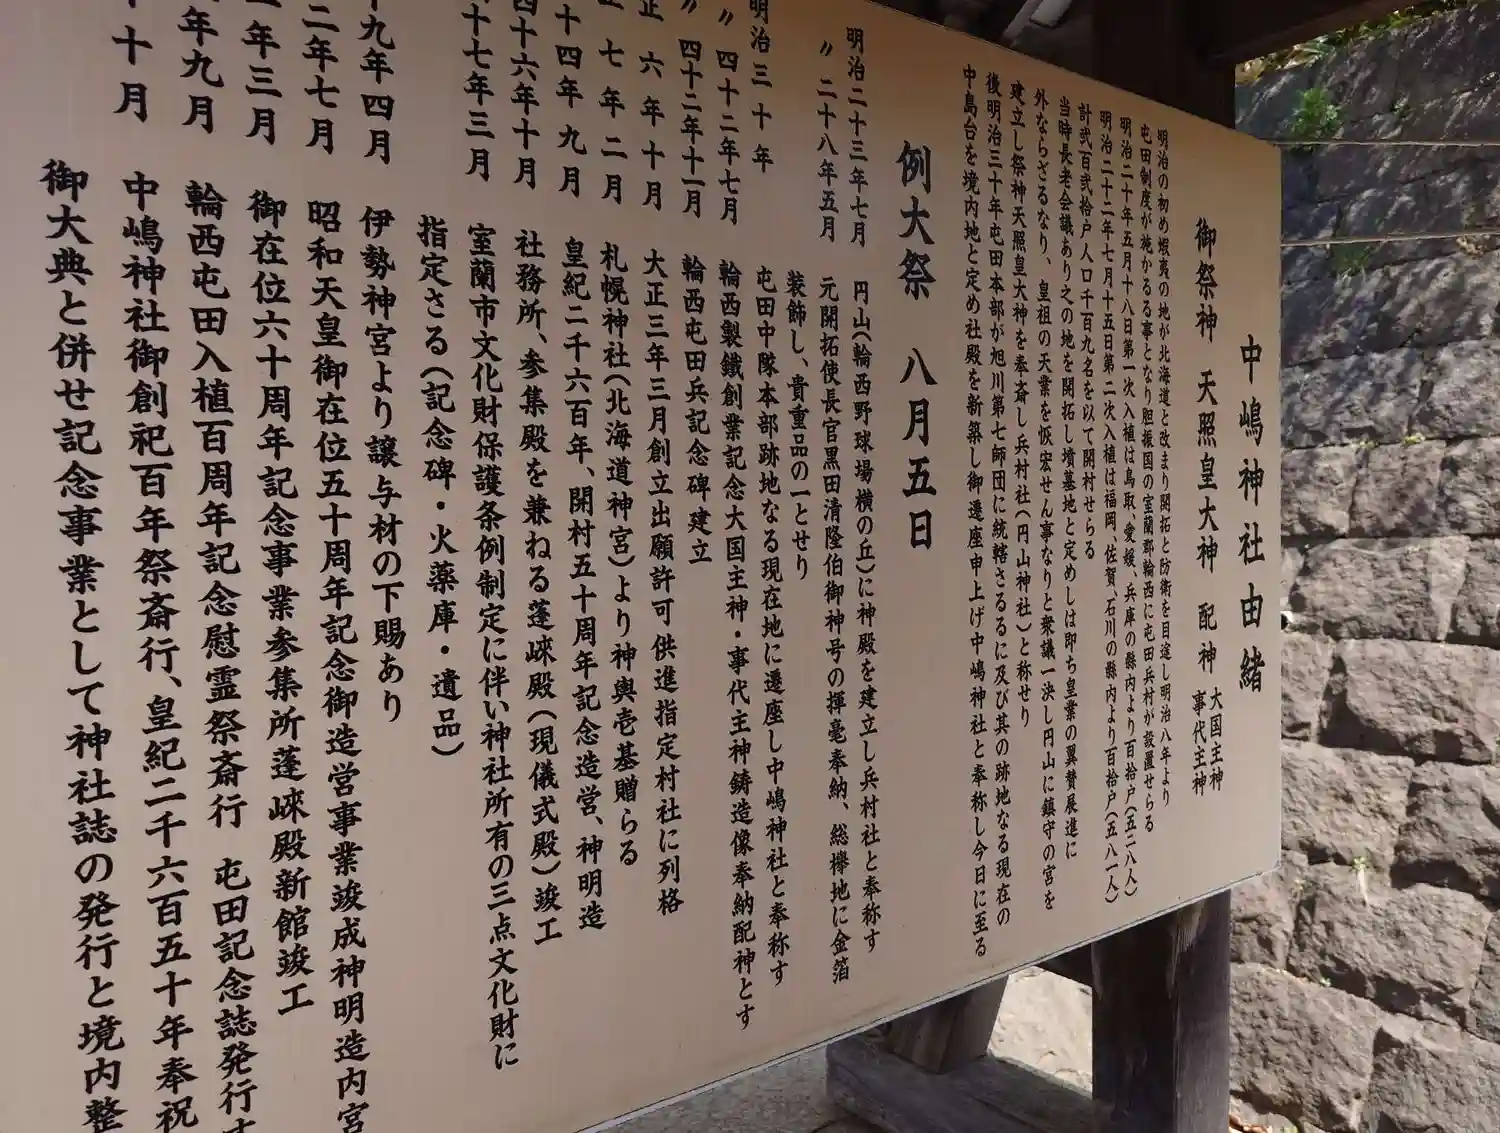 中嶋神社由緒
御祭神 天照皇大神 配神 大国主神
事代主神
明治の初め蝦夷の地が北海道と改まり開拓と防衛を目途し明治八年より
屯田制度が施かるる事となり胆振国の室蘭郡輪西に屯田兵村が設置せらる
明治二十年五月十八日第一次入植は鳥取、愛媛、兵庫の縣内より百拾戸(五二八人)
明治二十二年七月十五日第二次入植は福岡、佐賀、石川の縣内より百拾戸(五八一人)
計弐百弐拾戸人口千百九名を以て開村せらる
当時長老会議あり之の地を開拓し墳墓地と定めしは即ち皇業の翼賛展進に
外ならざるなり、皇祖の天業を恢宏せん事なりと衆議一決し円山に鎮守の宮を
建立し祭神天照皇大神を奉斎し兵村社(円山神社)と称せり
後明治三十年屯田本部が旭川第七師団に統轄さるるに及び其の跡地なる現在の
中島台を境内地と定め社殿を新築し御遷座申上げ中嶋神社と奉称し今日に至る
例大祭 八月五日
明治二十三年七月 円山(輪西野球場横の丘)に神殿を建立し兵村社と奉称す
〃 二十八年五月 元開拓使長官黒田清隆伯御神号の揮毫奉納、総欅地に金箔
装飾し、貴重品の一とせり
明治三十年 屯田中隊本部跡地なる現在地に遷座し中嶋神社と奉称す
〃 四十二年七月 輪西製鐵創業記念大国主神・事代主神鋳造像奉納配神とす
〃 四十二年十一月 輪西屯田兵記念碑建立
正 六年十月 大正三年三月創立出願許可供進指定村社に列格
七年二月 札幌神社(北海道神宮)より神輿壱基贈らる
十四年九月 皇紀二千六百年、開村五十周年記念造営、神明造
四十六年十月 社務所、参集殿を兼ねる蓬崍殿(現儀式殿)竣工
十七年三月 室蘭市文化財保護条例制定に伴い神社所有の三点文化財に
指定さる(記念碑・火薬庫・遺品)
九年四月 伊勢神宮より譲与材の下賜あり
二年七月 昭和天皇御在位五十周年記念御造営事業竣成神明造内宮
年三月 御在位六十周年記念事業参集所蓬崍殿新館竣工
年九月 輪西屯田入植百周年記念慰霊祭斎行 屯田記念誌発行す
十月 中嶋神社御創祀百年祭斎行、皇紀二千六百五十年奉祝
御大典と併せ記念事業として神社誌の発行と境内整